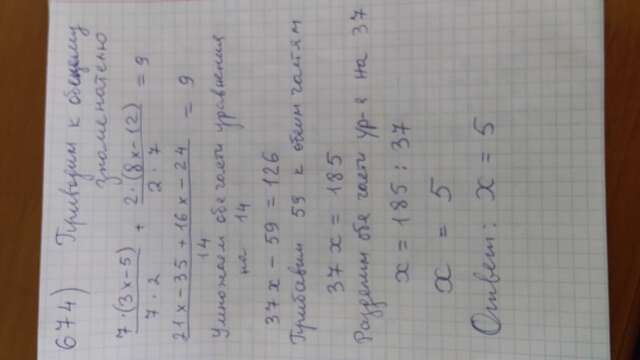 674) Приводим к общему
знаменателю
7·(3x-5)/7·2 + 2·(8x-12)/2·7 = 9
21x-35+16x-24/14 = 9
Умножаем обе части уравнения
на 14
37x - 59 = 126
Прибавим 59 к обеим частям
37x = 185
Разделим обе части ур-я на 37
x = 185 : 37
x = 5
Ответ: x = 5